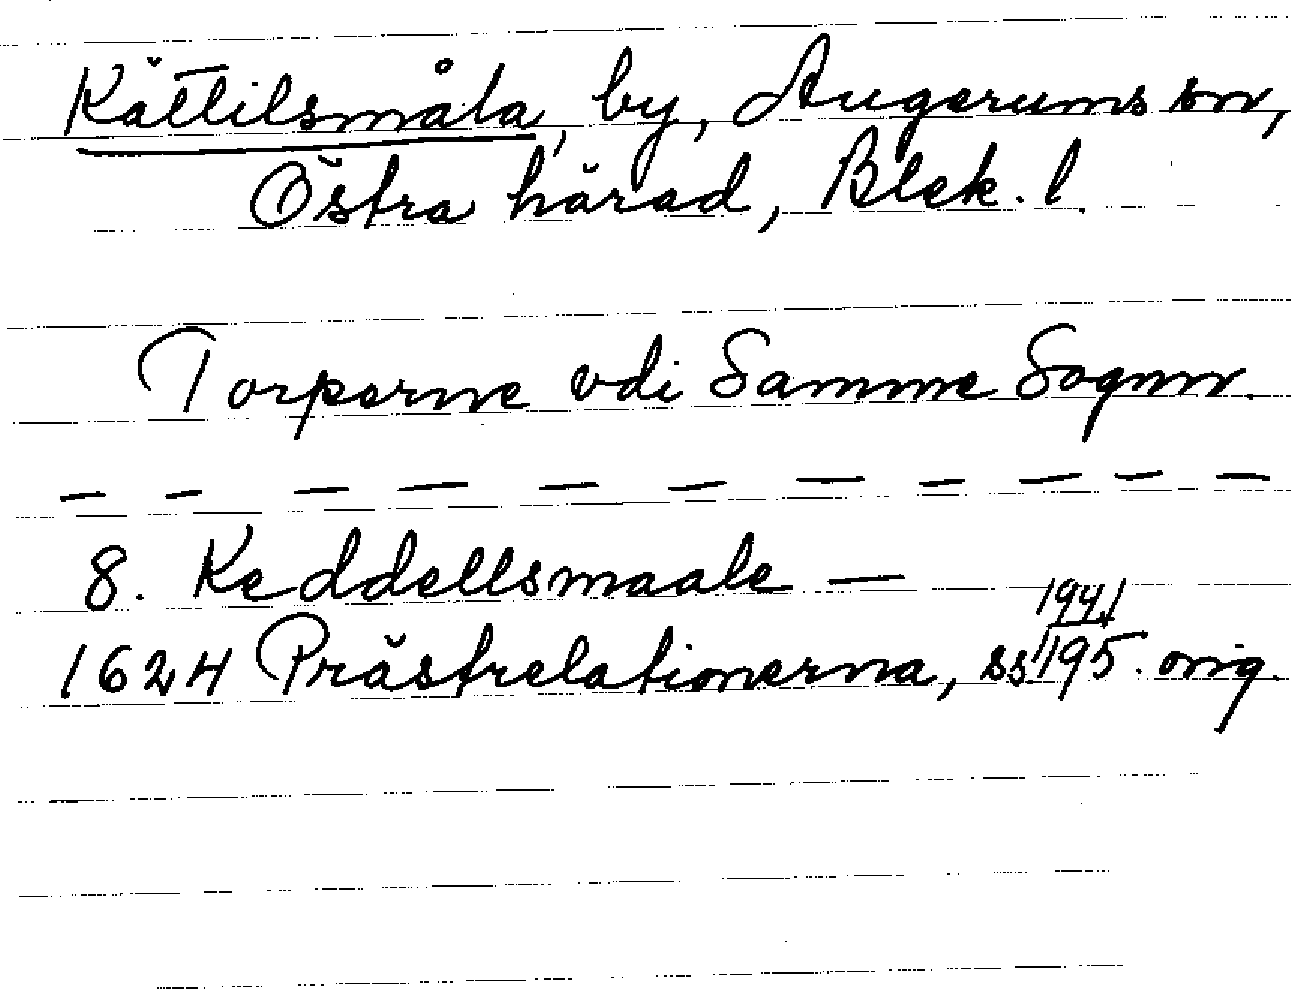 Kättilsmåla, by, Augerums sn,
Östra härad, Blek. l.
Torperne vdi Samme Sognn.
— — — — — — — — — — —
8. Keddellsmaale —
1624 Prästrelationerna, ss 194/195. orig.